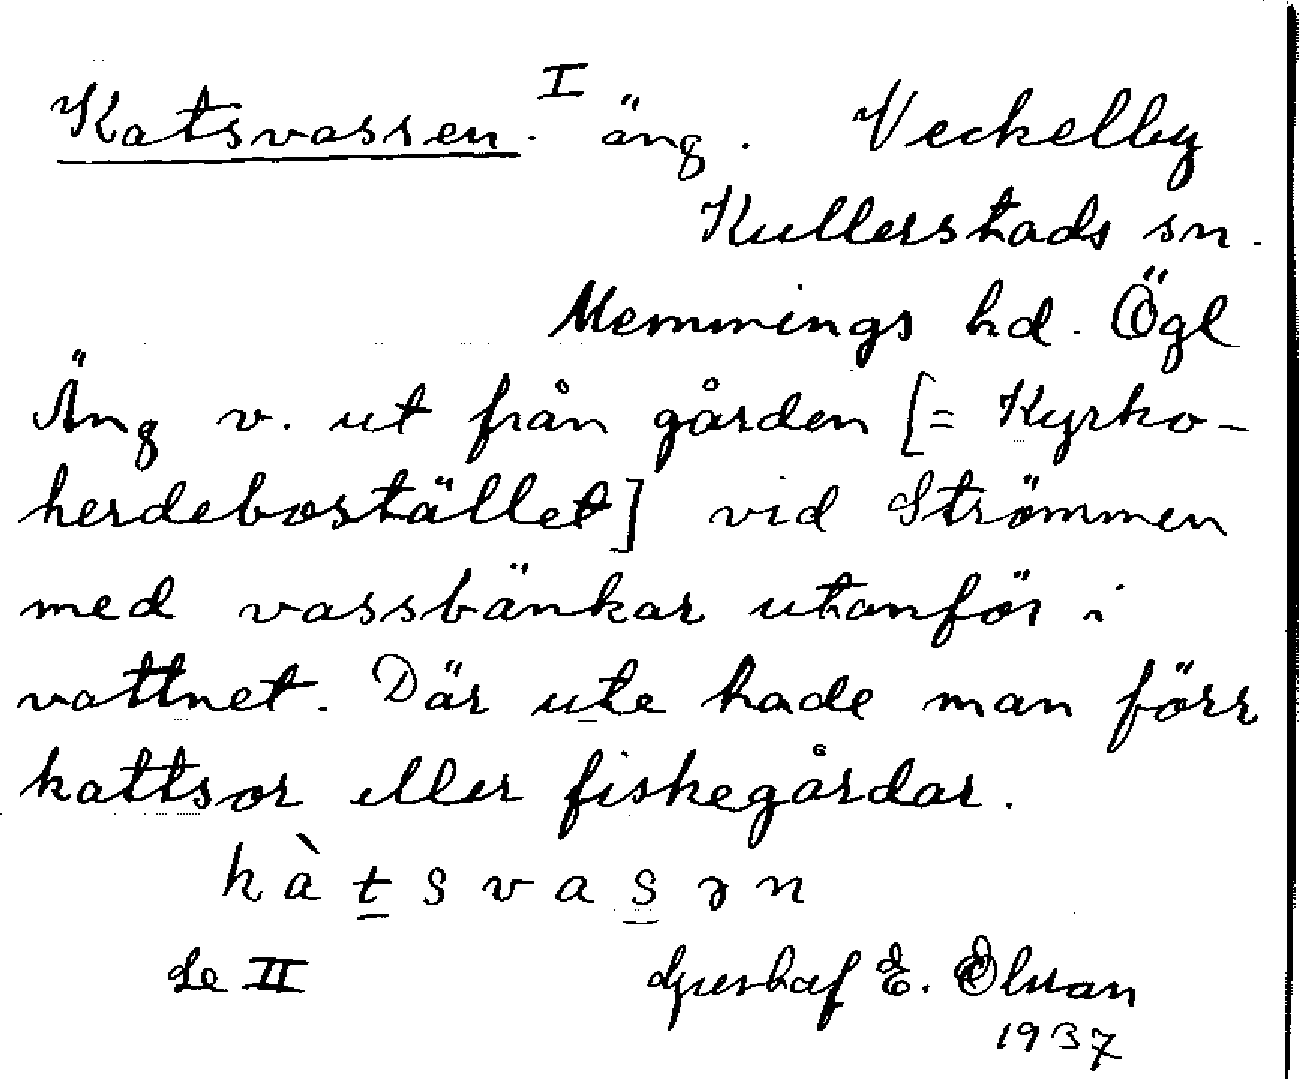 Katsvassen. I äng. Veckelby
Kullerstads sn.
Memmings hd. Ögl
Äng v. ut från gården [= Kyrko-
herdebostället] vid Strömmen
med vassbänkar utanför i
vattnet. Där ute hade man förr
kattsor eller fiskegårdar.
kàtsvasən
Se II Gustaf E. Olsson
1937